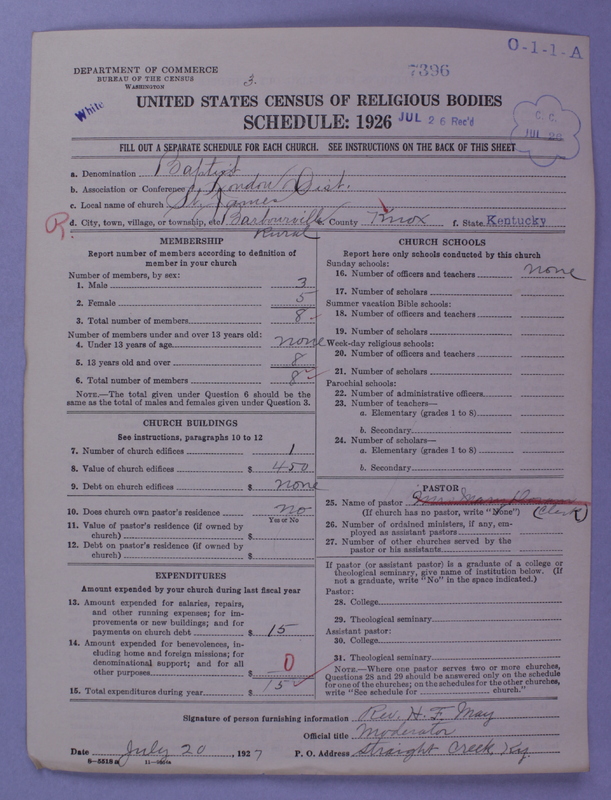 O-1-1-A
DEPARTMENT OF COMMERCE
BUREAU OF THE CENSUS
WASHINGTON
3.
7396
White
UNITED STATES CENSUS OF RELIGIOUS BODIES
SCHEDULE: 1926
JUL 26 Rec'd
C. C.
JUL 28
FILL OUT A SEPARATE SCHEDULE FOR EACH CHURCH. SEE INSTRUCTIONS ON THE BACK OF THIS SHEET
a. Denomination Baptist
b. Association or Conference London Dist.
c. Local name of church St. James
R. d. City, town, village, or township, etc. Barbourville e. County Knox f. State Kentucky
Rural
MEMBERSHIP
Report number of members according to definition of member in your church
Number of members, by sex:
1. Male 3
2. Female 5
3. Total number of members 8
Number of members under and over 13 years old:
4. Under 13 years of age none
5. 13 years old and over 8
6. Total number of members 8
NOTE.—The total given under Question 6 should be the
same as the total of males and females given under Question 3.
CHURCH BUILDINGS
See instructions, paragraphs 10 to 12
7. Number of church edifices 1
8. Value of church edifices $ 450
9. Debt on church edifices $ none
10. Does church own pastor's residence no
Yes or No
11. Value of pastor's residence (if owned by
church) $
12. Debt on pastor's residence (if owned by
church) $
EXPENDITURES
Amount expended by your church during last fiscal year
13. Amount expended for salaries, repairs,
and other running expenses; for im-
provements or new buildings; and for
payments on church debt $ 15
14. Amount expended for benevolences, in-
cluding home and foreign missions; for
denominational support; and for all
other purposes $ 0
15. Total expenditures during year $ 15
CHURCH SCHOOLS
Report here only schools conducted by this church
Sunday schools:
16. Number of officers and teachers none
17. Number of scholars
Summer vacation Bible schools:
18. Number of officers and teachers
19. Number of scholars
Week-day religious schools:
20. Number of officers and teachers
21. Number of scholars
Parochial schools:
22. Number of administrative officers
23. Number of teachers—
a. Elementary (grades 1 to 8)
b. Secondary
24. Number of scholars—
a. Elementary (grades 1 to 8)
b. Secondary
PASTOR
25. Name of pastor
(If church has no pastor, write "None") (Clerk)
26. Number of ordained ministers, if any, em-
ployed as assistant pastors
27. Number of other churches served by the
pastor or his assistants
If pastor (or assistant pastor) is a graduate of a college or
theological seminary, give name of institution below. (If
not a graduate, write "No" in the space indicated.)
Pastor:
28. College
29. Theological seminary
Assistant pastor:
30. College
31. Theological seminary
NOTE.—Where one pastor serves two or more churches,
Questions 28 and 29 should be answered only on the schedule
for one of the churches; on the schedules for the other churches,
write "See schedule for church."
Signature of person furnishing information Rev. H. F. May
Official title Moderator
Date July 20, 1927 P. O. Address Straight Creek, Ky.